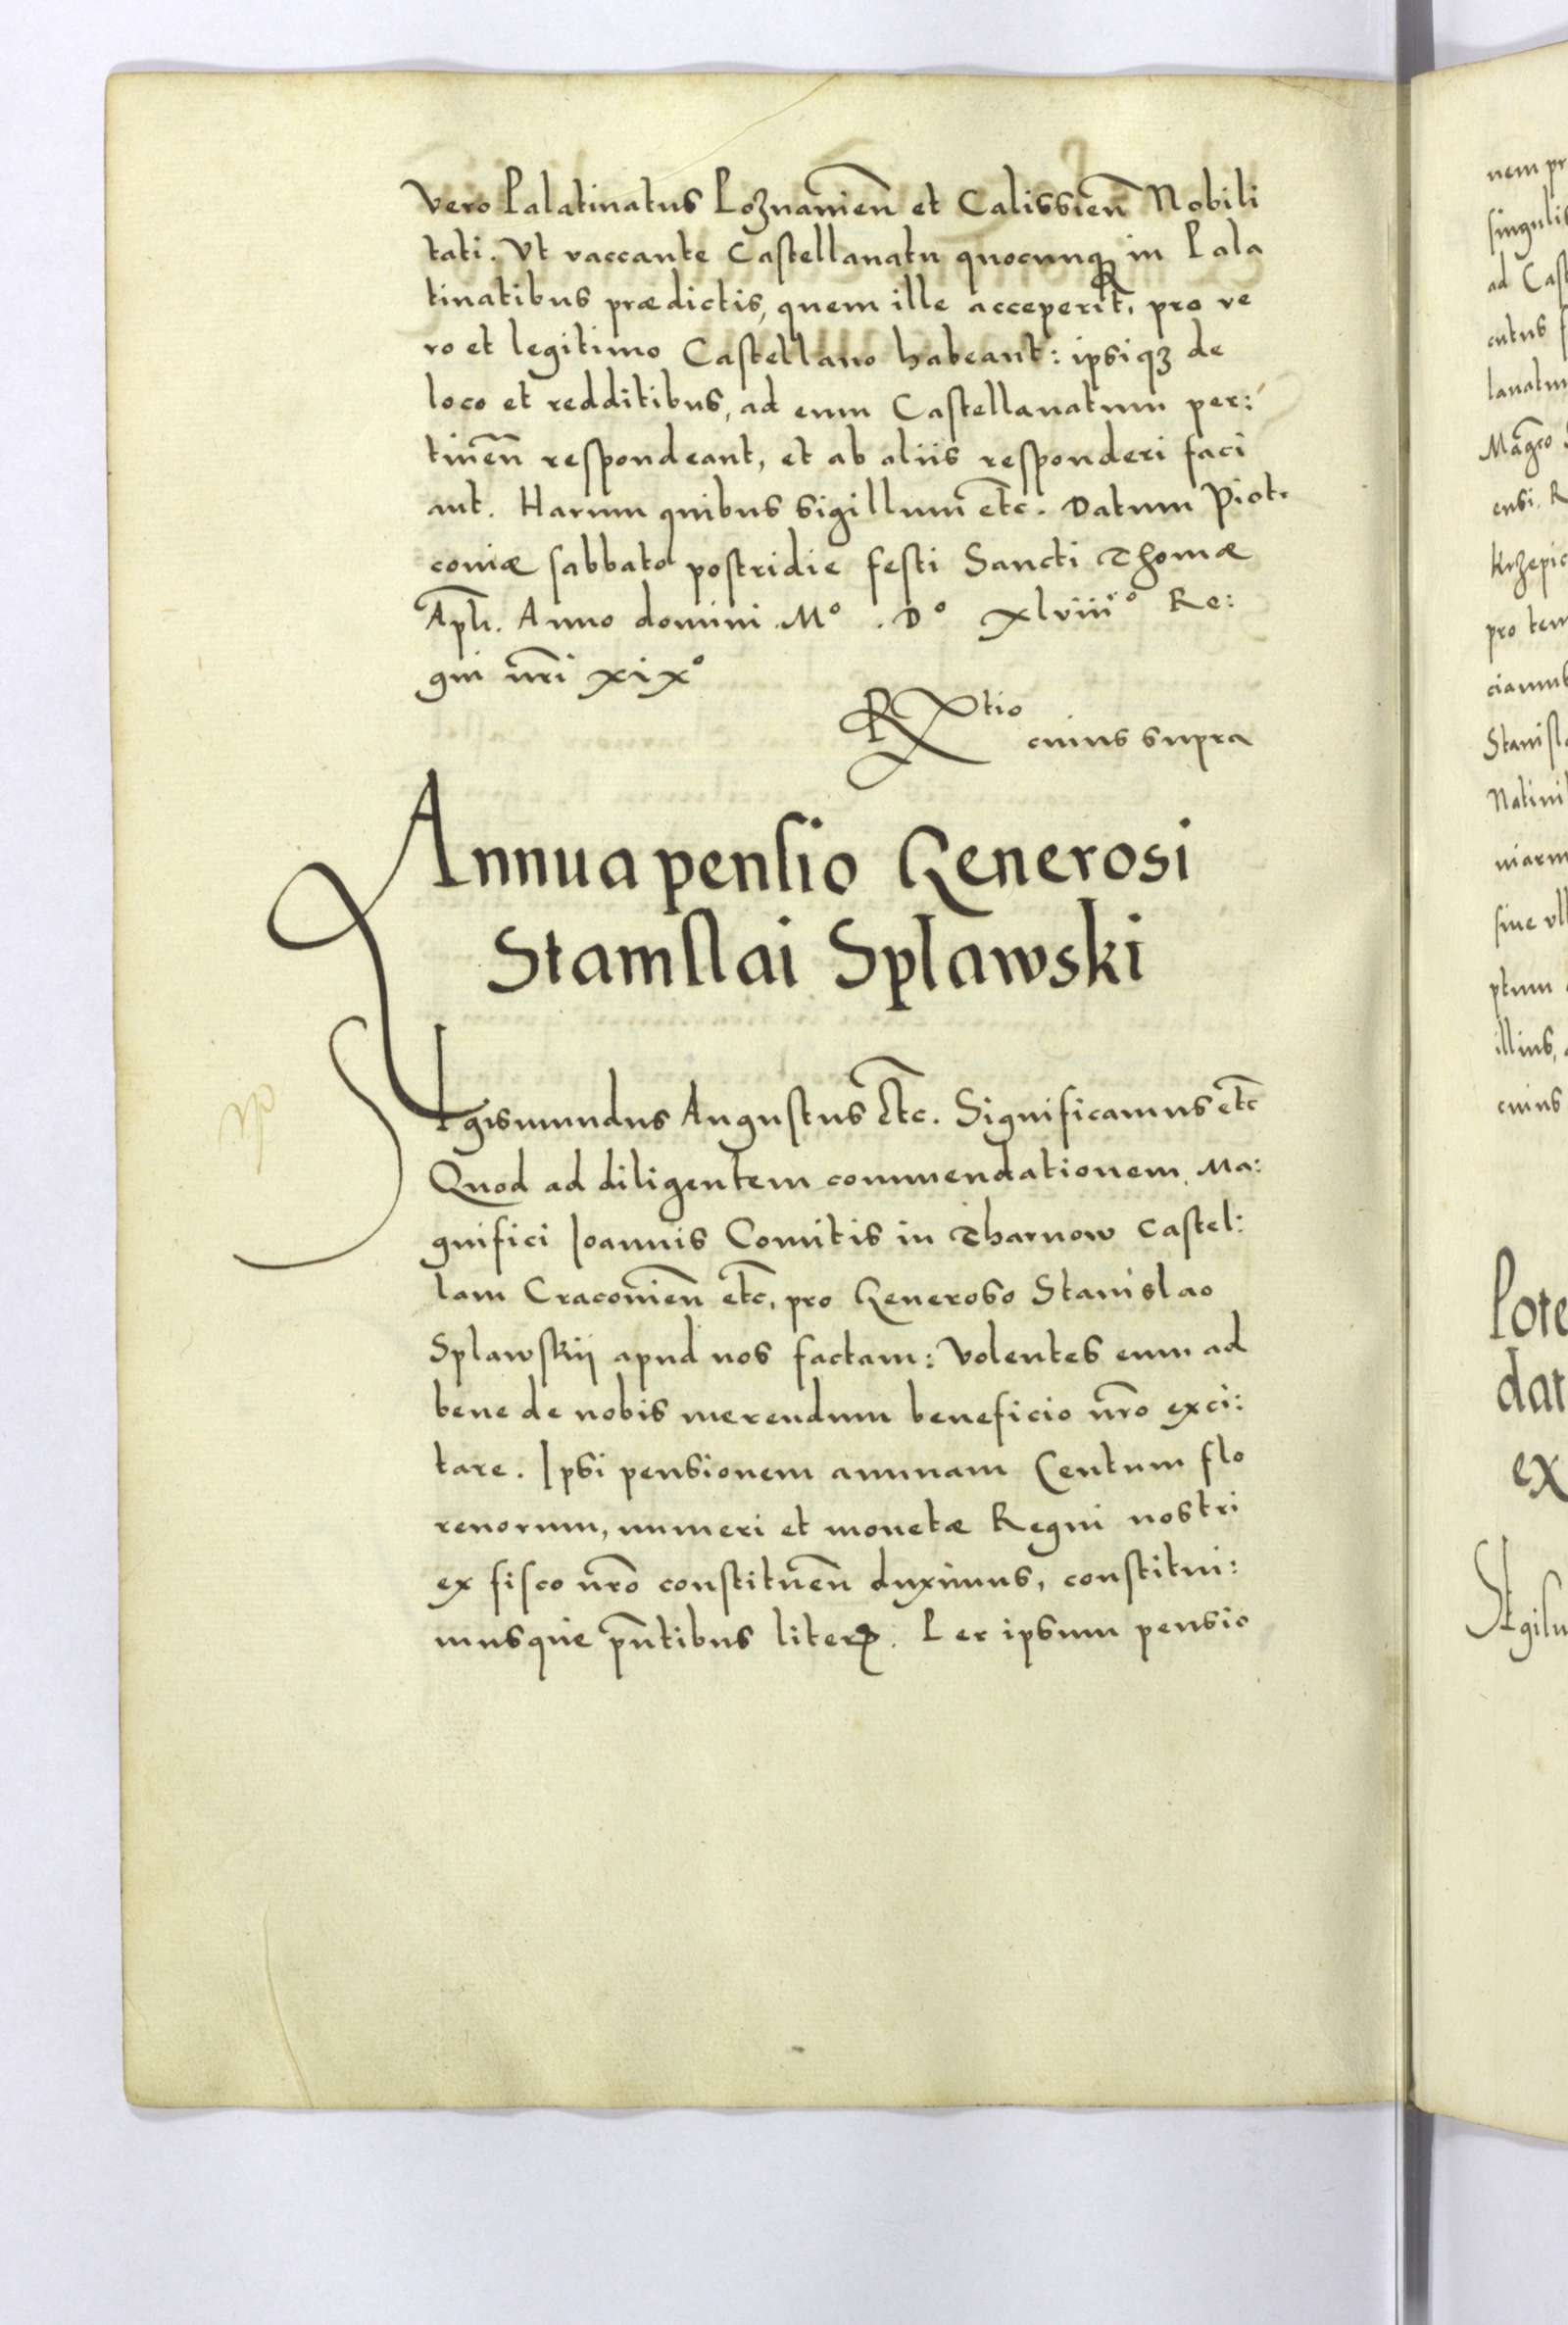 Vero Palatinatus Poznanien̄ et Calissien̄ Nobili
tati. Vt vaccante Castellanatu quocunq in Pala
tinatibus prædictis, quem ille acceperit, pro ve
ro et legitimo Castellano habeant: ipsiqꝫ de
loco et redditibus, ad eum Castellanatum per:
tineñ respondeant, et ab aliis responderi faci
ant. Harum quibus sigillum etc̄. Datum Piot.
coniæ sabbato postridie festi Sancti Thomæ
Apłi. Anno domini Mº. Dº xlviiiº Re:
gni nr̄i xixº
Rtio cuius supra
Annua pensio Generosi
Stanislai Splawski
Sigismundus Augustus Etc̄. Significamus etc̄
Quod ad diligentem commendationem Ma:
gnifici Joannis Comitis in Tharnow Castel:
lani Cracovien̄ etc̄, pro Generoso Stanislao
Splawskij apud nos factam: Volentes eum ad
bene de nobis merendum beneficio nr̄o exci:
tare. Ipsi pensionem annuam Centum flo
renorum, numeri et monetæ Regni nostri
ex fisco nr̄o constitueñ duximus, constitui:
musque pn̄tibus literꝝ. Per ipsum pensio
nem pr
singulis
ad Cast
lanatum
Mag̃co
ensi. R
Krzepic
pro tem
Stanisl
sine vll
ptum
illius,
cuius
Pote
dat
ex